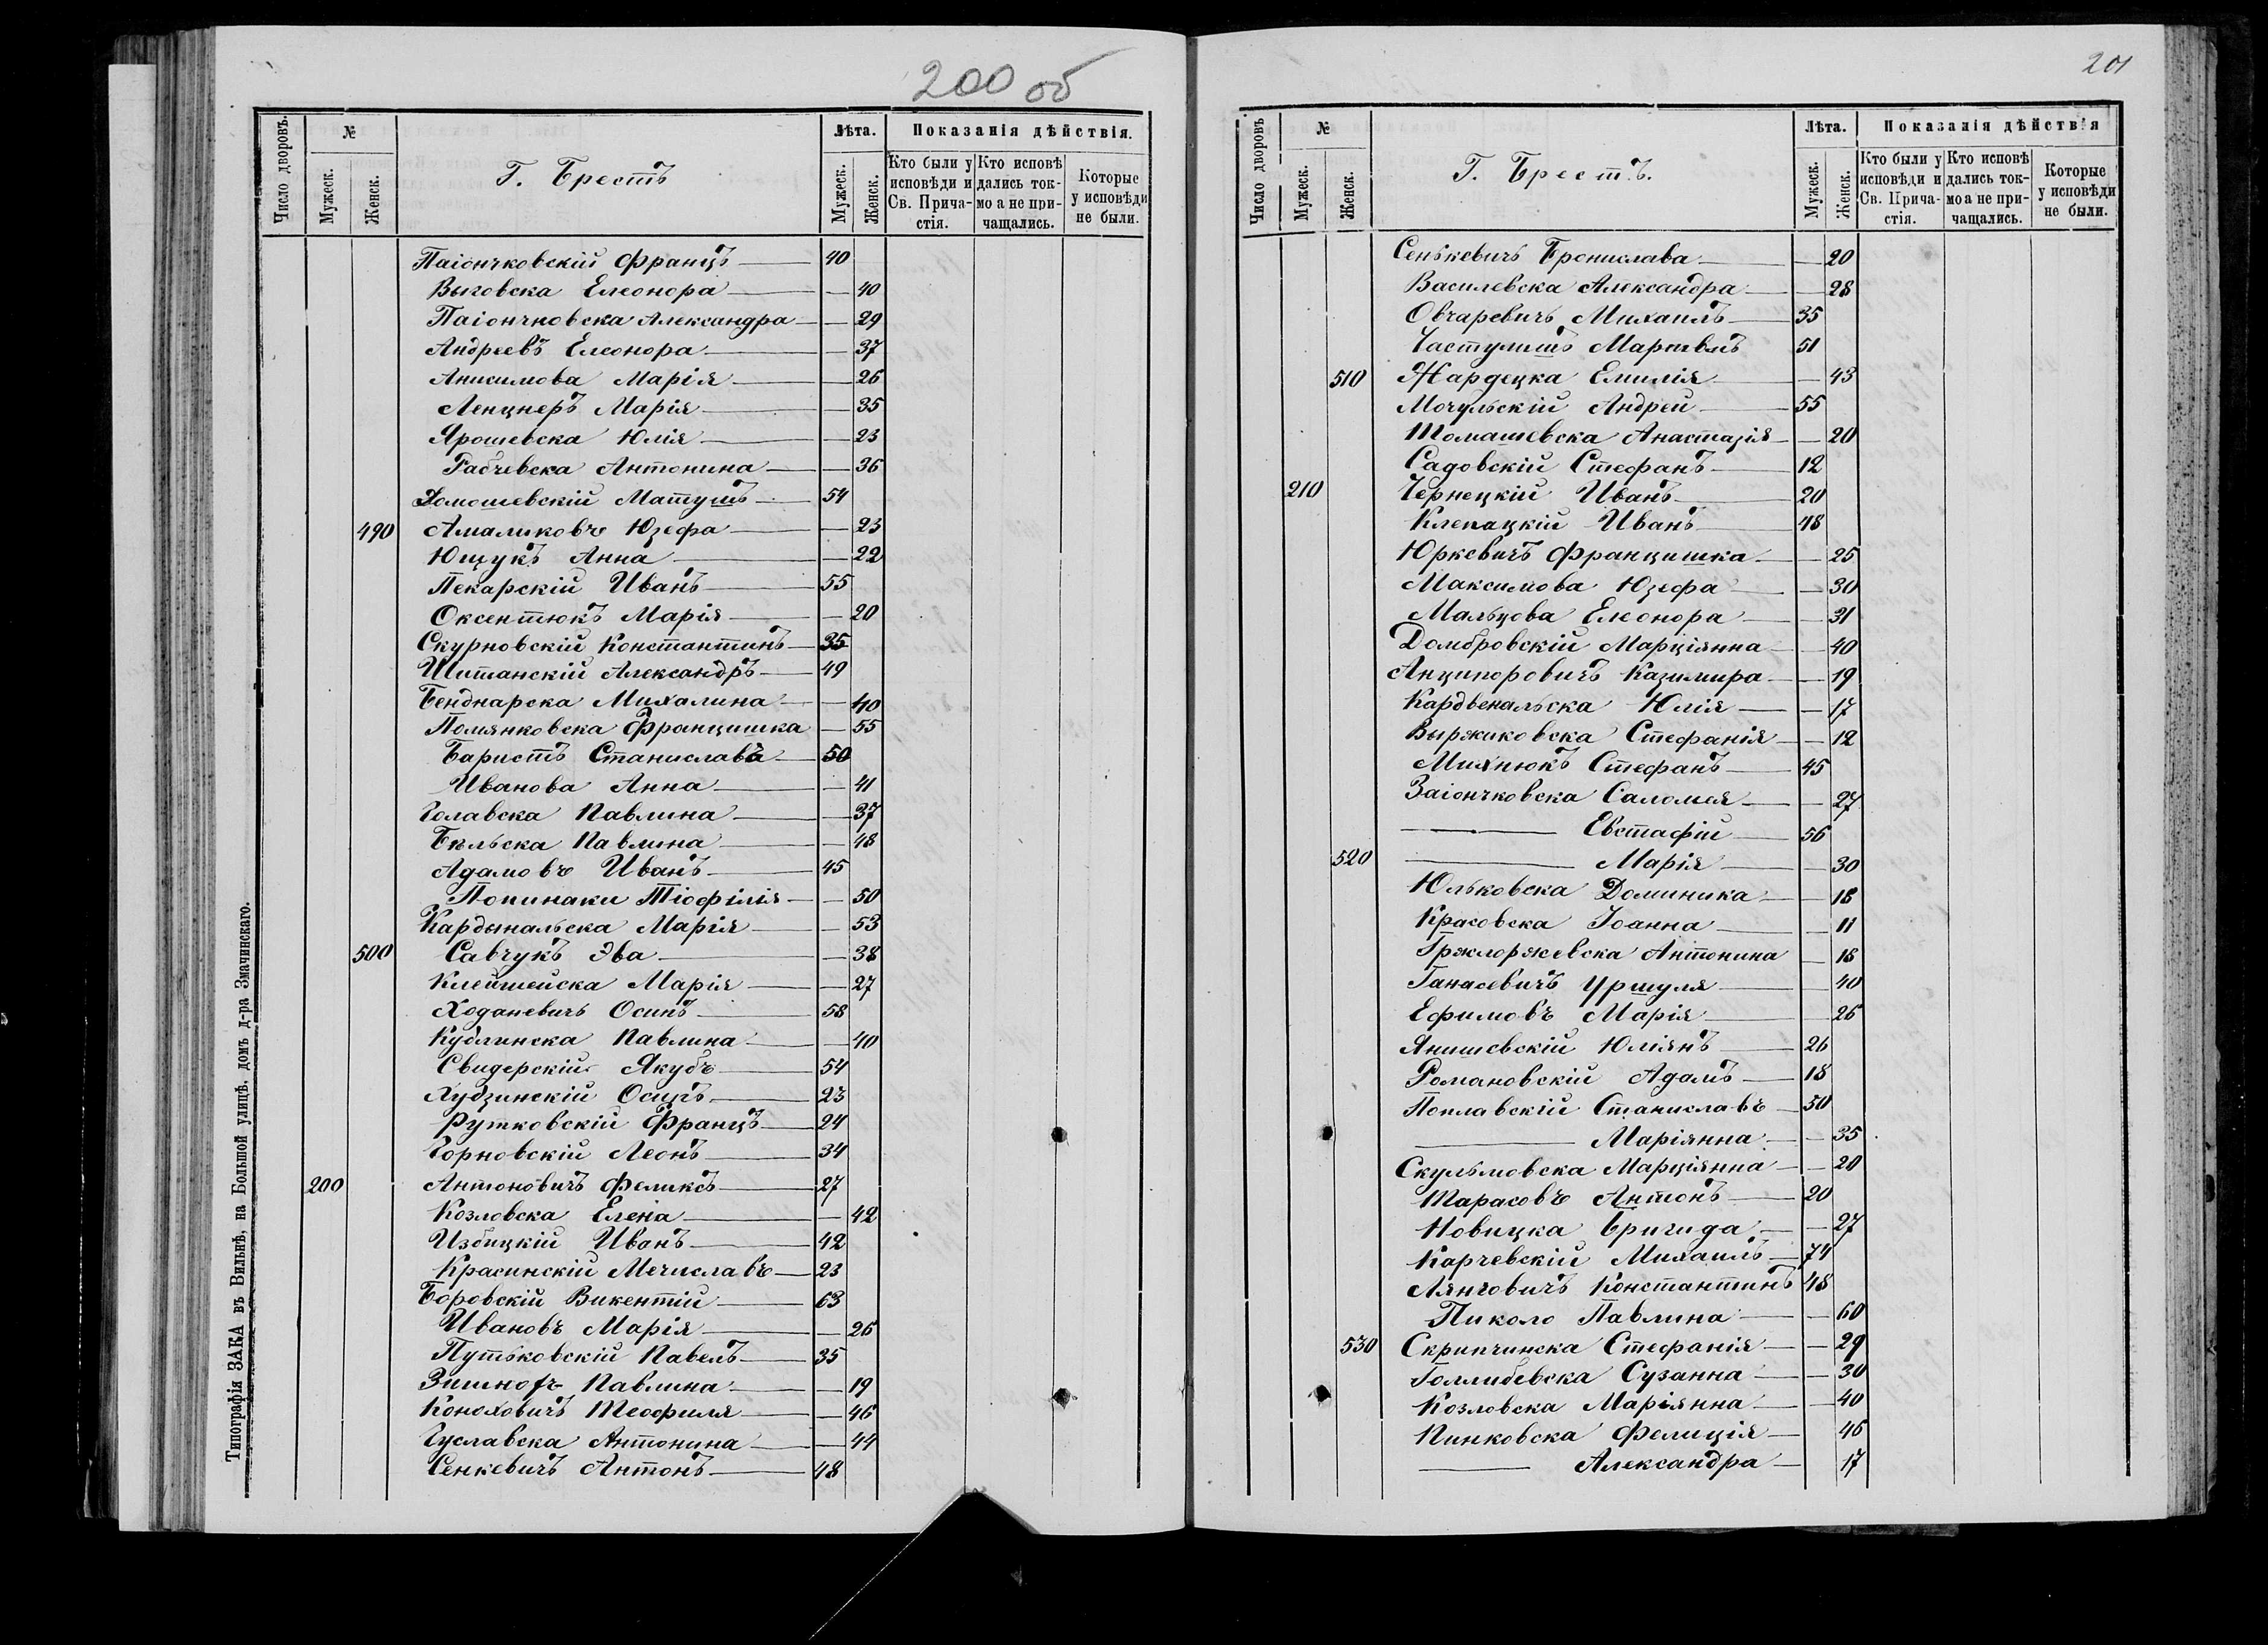 200 об
Число дворовъ.
№
Мужеск.
Женск.
Г. Брестъ
Лѣта.
Мужеск.
Женск.
Показанія дѣйствія.
Кто были у исповѣди и Св. Прича- стія.
Кто исповѣ дались ток- мо а не при- чащались.
Которые у исповѣди не были.
Паіончковскій Францъ — 40
Выговска Елеонора — 40
Паіончковска Александра — 29
Андреевъ Елеонора — 37
Анисимова Марія — 26
Ленцнеръ Марія — 35
Ярошевска Юлія — 23
Рабчевска Антонина — 36
Хомошевскій Матушъ — 54
490 Амаликовъ Юзефа — 23
Ющукъ Анна — 22
Пекарскій Иванъ — 55
Оксентюкъ Марія — 20
Скурновскій Константинъ — 35
Шитанскій Александръ — 49
Бенднарска Михалина — 40
Помянковска Францишка — 55
Баристъ Станиславъ — 50
Иванова Анна — 41
Голавска Павлина — 37
Бѣльска Павлина — 48
Адамовъ Иванъ — 45
Попинаки Тіофілія — 50
Кардынальска Марія — 53
500 Савчукъ Эва — 38
Клейшейска Марія — 27
Ходаневичъ Осипъ — 58
Кублинска Павлина — 40
Свидерскій Якубъ — 54
Худзинскій Осипъ — 23
Рутковскій Францъ — 24
Горновскій Леонъ — 34
200 Антоновичъ Феликсъ — 27
Козловска Елена — 42
Избицкій Иванъ — 42
Красинскій Мечиславъ — 23
Боровскій Викентій — 63
Ивановъ Марія — 26
Путьковскій Павелъ — 35
Павлина — 19
Коноховичъ Теофиля — 46
Гуславска Антонина — 44
Сенкевичъ Антонъ — 48
Типографія ЗАКА въ Вильнѣ, на Большой улицѣ, домъ д-ра Змачинскаго.
201
Число дворовъ
№
Мужеск.
Женск.
Г. Брестъ.
Лѣта.
Мужеск.
Женск.
Показанія дѣйствія
Кто были у исповѣди и Св. Прича- стія.
Кто исповѣ дались ток- мо а не при- чащались.
Которые у исповѣди не были.
Сенькевичъ Бронислава — 20
Василевска Александра — 28
Овчаревичъ Михаилъ — 35
Частулитъ 51
510 Жардецка Емилія — 43
Мочульскій Андрей — 55
Томашевска Анастазія — 20
Садовскій Стефанъ — 12
210 Чернецкій Иванъ — 20
Клепацкій Иванъ — 48
Юркевичъ Францишка — 25
Максимова Юзефа — 30
Мальцова Елеонора — 31
Домбровскій Марціянна — 40
Анципоровичъ Казимира — 19
Кардвенальска Юлія — 17
Выржиковска Стефанія — 12
Михнюкъ Стефанъ — 45
Заіончковска Саломея — 27
— Евстафій — 56
520 — Марія — 30
Юльковска Доминика — 18
Красовска Іоанна — 11
Гржлоржевска Антонина — 18
Ганасевичъ Уршуля — 40
Ефимовъ Марія — 26
Янишевскій Юліянъ — 26
Романовскій Адамъ — 18
Поплавскій Станиславъ — 50
— Маріянна — 35
Скульмовска Марціянна — 20
Тарасовъ Антонъ — 20
Новицка Бригида — 27
Карчевскій Михаилъ — 74
Лянговичъ Константинъ 48
Пиколо Павлина — 60
530 Скрипчинска Стефанія — 29
Голлибевска Сузанна — 30
Козловска Маріянна — 40
Пинковска Фелиція — 46
— Александра — 17